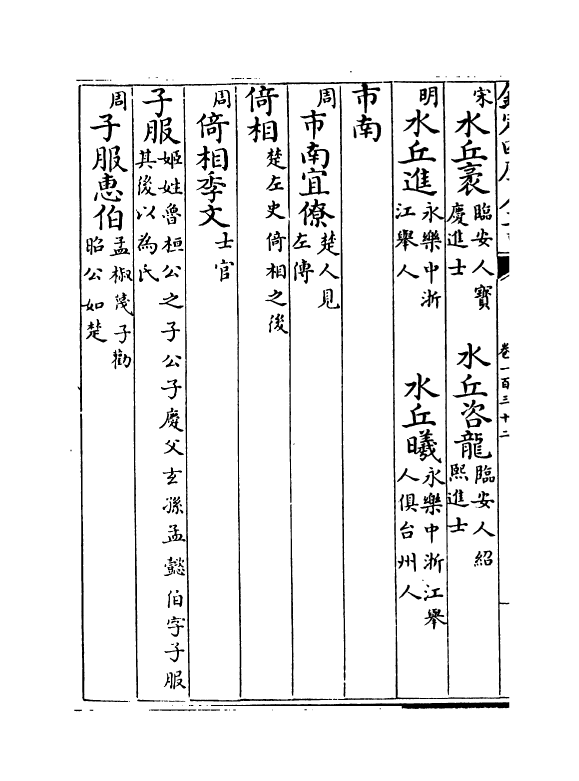 卷一百三十二
宋 水丘袤 臨安人寶慶進士 水丘咨龍 臨安人紹熙進士
明 水丘進 永樂中浙江舉人 水丘曦 永樂中浙江舉人俱台州人
市南
周 市南宜僚 楚人見左傳
倚相 楚左史倚相之後
周 倚相季文 士官
子服 姬姓魯桓公之子公子慶父玄孫孟懿伯字子服其後以為氏
周 子服惠伯 孟椒諫子勸昭公如楚